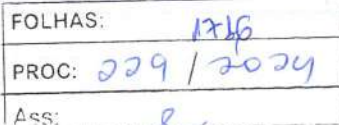 FOLHAS: 1716
PROC: 229 / 2024
Ass: